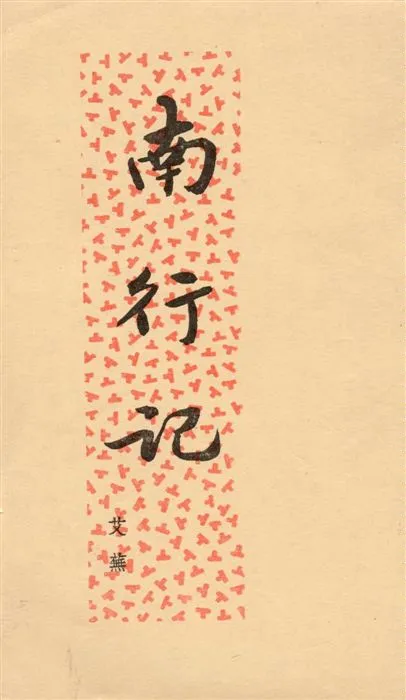 南行记
艾蕪